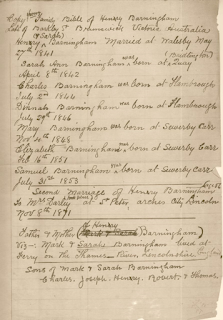 Holy James Bible of Henry Barmingham
Late of Bradley St Brunswick Victoria Australia
Henry Barmingham Married at Waleby May
27th 1841
Sarah Ann Barmingham was born at
April 8th 1842
Charles Barmingham was born at Flambrough
July 22 1844
Hannah Barmingham was born at Flambrough
July 29th 1846
Mary Barmingham was born at Sewerby Carr
Nov 4th 1848
Elizabeth Barmingham born at Sewerby Carr
Feb 16th 1851
Samuel Barmingham was born at Sewerby Carr
July 31st 1853
Second Marriage of Henry Barmingham
To Mrs Darley at St Peters arches City Lincoln
Nov 8th 1891
of Henry
Father & Mother Barmingham)
Viz- Mark & Sarah Barmingham lived at
Ferry on the Thames Burn Lincolnshire
Sons of Mark & Sarah Barmingham
Charles Joseph. Henry, Robert & Thomas